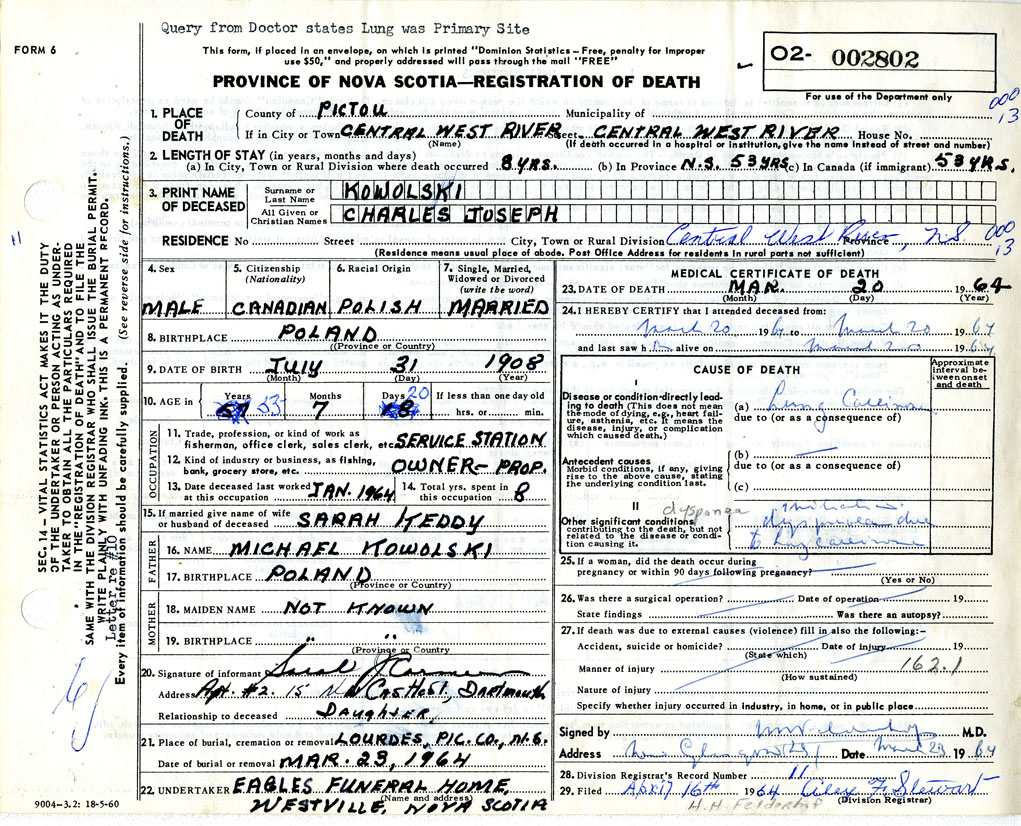 Query from Doctor states Lung was Primary Site
FORM 6
This form, if placed in an envelope, on which is printed "Dominion Statistics—Free, penalty for improper
use $50," and properly addressed will pass through the mail "FREE"
O2- 002802
For use of the Department only
PROVINCE OF NOVA SCOTIA—REGISTRATION OF DEATH
000
13
1. PLACE OF DEATH
County of PICTOU Municipality of
If in City or Town CENTRAL WEST RIVER Street CENTRAL WEST RIVER House No.
(Name) (If death occurred in a hospital or institution, give the name instead of street and number)
2. LENGTH OF STAY (in years, months and days)
(a) In City, Town or Rural Division where death occurred 8 YRS. (b) In Province N.S. 53 YRS. (c) In Canada (if immigrant) 53 YRS.
3. PRINT NAME OF DECEASED
Surname or Last Name KOWOLSKI
All Given or Christian Names CHARLES JOSEPH
RESIDENCE No Street City, Town or Rural Division Central West River, N.S. Province
000
13
(Residence means usual place of abode. Post Office Address for residents in rural parts not sufficient)
4. Sex MALE
5. Citizenship (Nationality) CANADIAN
6. Racial Origin POLISH
7. Single, Married, Widowed or Divorced (write the word) MARRIED
8. BIRTHPLACE POLAND
(Province or Country)
9. DATE OF BIRTH JULY 31 1908
(Month) (Day) (Year)
10. AGE in Years 55 Months 7 Days 20 If less than one day old
hrs. or min.
OCCUPATION
11. Trade, profession, or kind of work as
fisherman, office clerk, sales clerk, etc. SERVICE STATION
12. Kind of industry or business, as fishing,
bank, grocery store, etc. OWNER-PROP.
13. Date deceased last worked at this occupation JAN. 1964 14. Total yrs. spent in this occupation 8
15. If married give name of wife
or husband of deceased SARAH KEDDY
FATHER
16. NAME MICHAEL KOWOLSKI
17. BIRTHPLACE POLAND
(Province or Country)
MOTHER
18. MAIDEN NAME NOT KNOWN
19. BIRTHPLACE " "
(Province or Country)
20. Signature of informant
Address Apt. #2. 15 Dartmouth
Relationship to deceased DAUGHTER
21. Place of burial, cremation or removal LOURDES, PIC. CO., N.S.
Date of burial or removal MAR. 23, 1964
22. UNDERTAKER EAGLES FUNERAL HOME,
(Name and address)
WESTVILLE, NOVA SCOTIA
9004-3.2: 18-5-60
MEDICAL CERTIFICATE OF DEATH
23. DATE OF DEATH MAR. 20 1964
(Month) (Day) (Year)
24. I HEREBY CERTIFY that I attended deceased from:
March 20 1964 to March 20 1964
and last saw h alive on March 20 1964
CAUSE OF DEATH
Approximate interval between onset and death
I
Disease or condition directly leading to death (This does not mean the mode of dying, e.g., heart failure, asthenia, etc. It means the disease, injury, or complication which caused death.)
(a) Lung Carcinoma
due to (or as a consequence of)
Antecedent causes
Morbid conditions, if any, giving rise to the above cause, stating the underlying condition last.
(b)
due to (or as a consequence of)
(c)
II
dysponea
Other significant conditions contributing to the death, but not related to the disease or condition causing it.
dyspnoea due
to lung carcinoma
25. If a woman, did the death occur during
pregnancy or within 90 days following pregnancy?
(Yes or No)
26. Was there a surgical operation? Date of operation 19
State findings Was there an autopsy?
27. If death was due to external causes (violence) fill in also the following:-
Accident, suicide or homicide? Date of injury 19
(State which)
162.1
Manner of injury
(How sustained)
Nature of injury
Specify whether injury occurred in industry, in home, or in public place
Signed by M.D.
Address New Glasgow Date March 23 1964
28. Division Registrar's Record Number 11
29. Filed April 16th 1964 Alex F. Stewart
(Division Registrar)
SEC. 14 – VITAL STATISTICS ACT MAKES IT THE DUTY
OF THE UNDERTAKER OR PERSON ACTING AS UNDERTAKER TO OBTAIN ALL THE PARTICULARS REQUIRED
IN THE "REGISTRATION OF DEATH" AND TO FILE THE
SAME WITH THE DIVISION REGISTRAR WHO SHALL ISSUE THE BURIAL PERMIT.
WRITE PLAINLY WITH UNFADING INK. THIS IS A PERMANENT RECORD.
Letter re #10
Every item of information should be carefully supplied. (See reverse side for instructions.)